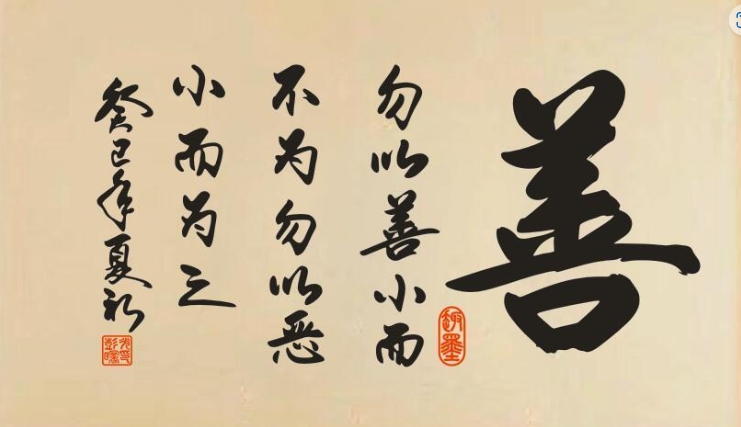 善
勿以善小而
不为勿以恶
小而为之
癸巳年夏初
趣墨